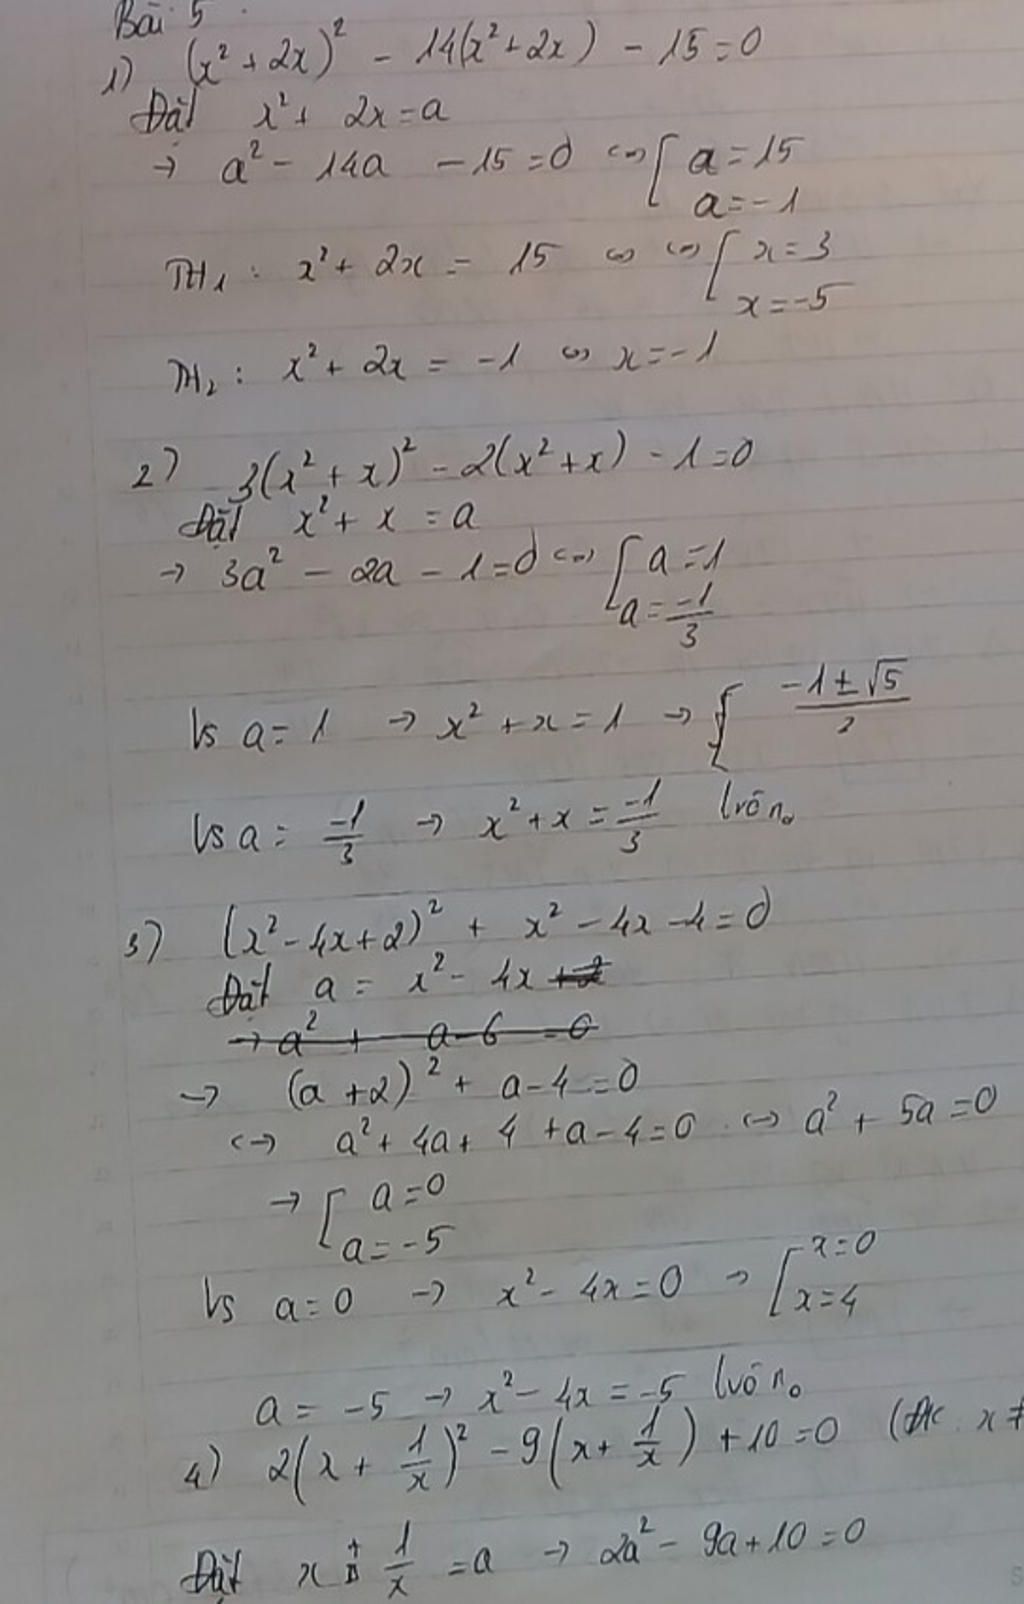 Bài 5
1) (x² + 2x)² - 14(x² + 2x) - 15 = 0
Đặt x² + 2x = a
→ a² - 14a - 15 = 0 ⇔ [ a = 15
a = -1
TH1 : x² + 2x = 15 ⇔ ⇔ [ x = 3
x = -5
TH2 : x² + 2x = -1 ⇔ x = -1
2) 3(x² + x)² - 2(x² + x) - 1 = 0
Đặt x² + x = a
→ 3a² - 2a - 1 = 0 ⇔ [ a = 1
a = -1/3
Vs a = 1 → x² + x = 1 → [ (-1 ± √5)/2
Vs a = -1/3 → x² + x = -1/3 (vô no
3) (x² - 4x + 2)² + x² - 4x - 4 = 0
Đặt a = x² - 4x + 2
→ a² + a - 6 = 0
→ (a + 2)² + a - 4 = 0
↔ a² + 4a + 4 + a - 4 = 0 ↔ a² + 5a = 0
→ [ a = 0
a = -5
Vs a = 0 → x² - 4x = 0 → [ x = 0
x = 4
a = -5 → x² - 4x = -5 (vô no
4) 2(x + 1/x)² - 9(x + 1/x) + 10 = 0 (Đk x ≠
Đặt x + 1/x = a → 2a² - 9a + 10 = 0